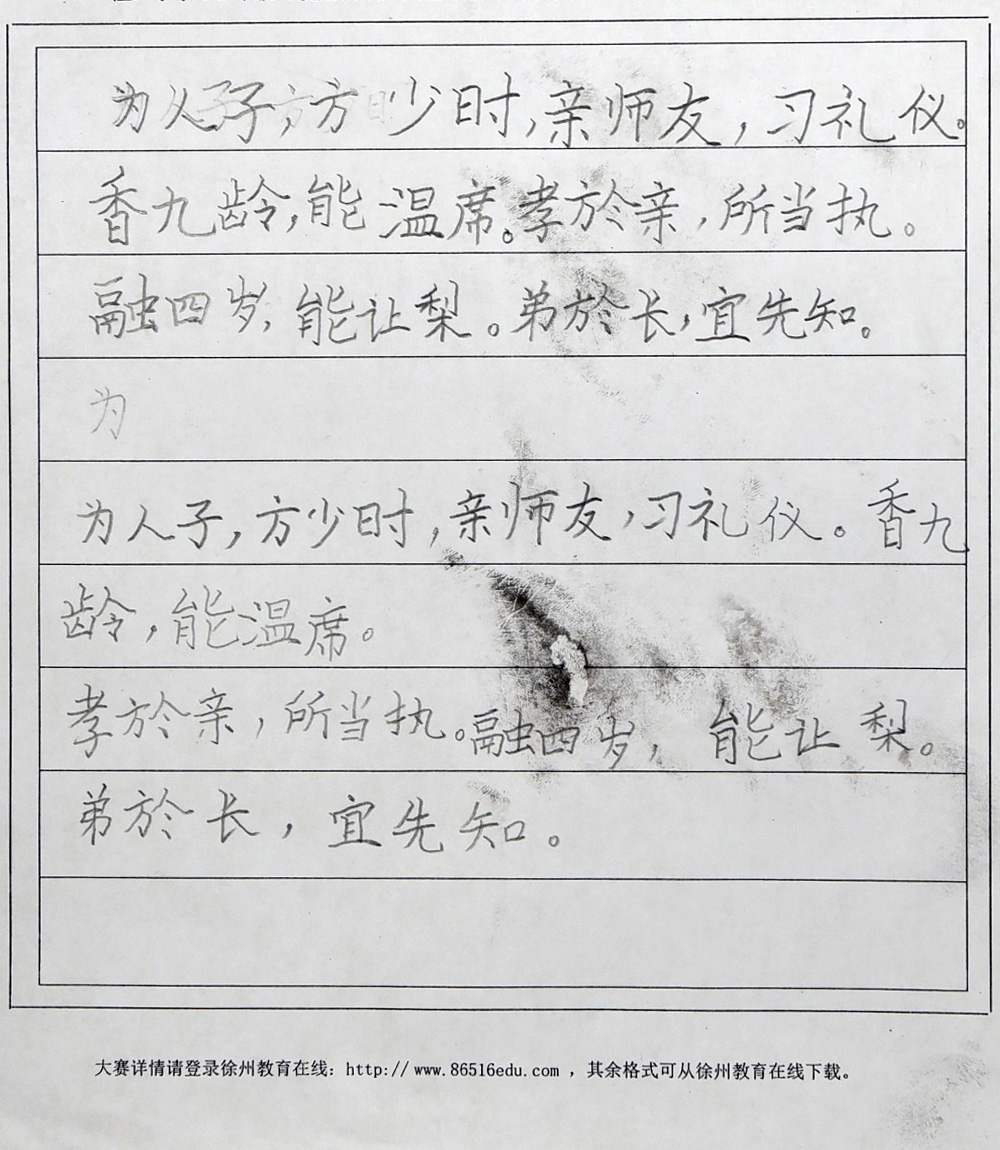 为人子，方少时，亲师友，习礼仪。
香九龄，能温席。孝於亲，所当执。
融四岁，能让梨。弟於长，宜先知。
为
为人子，方少时，亲师友，习礼仪。香九
龄，能温席。
孝於亲，所当执。融四岁，能让梨。
弟於长，宜先知。
大赛详情请登录徐州教育在线：http://www.86516edu.com ，其余格式可从徐州教育在线下载。